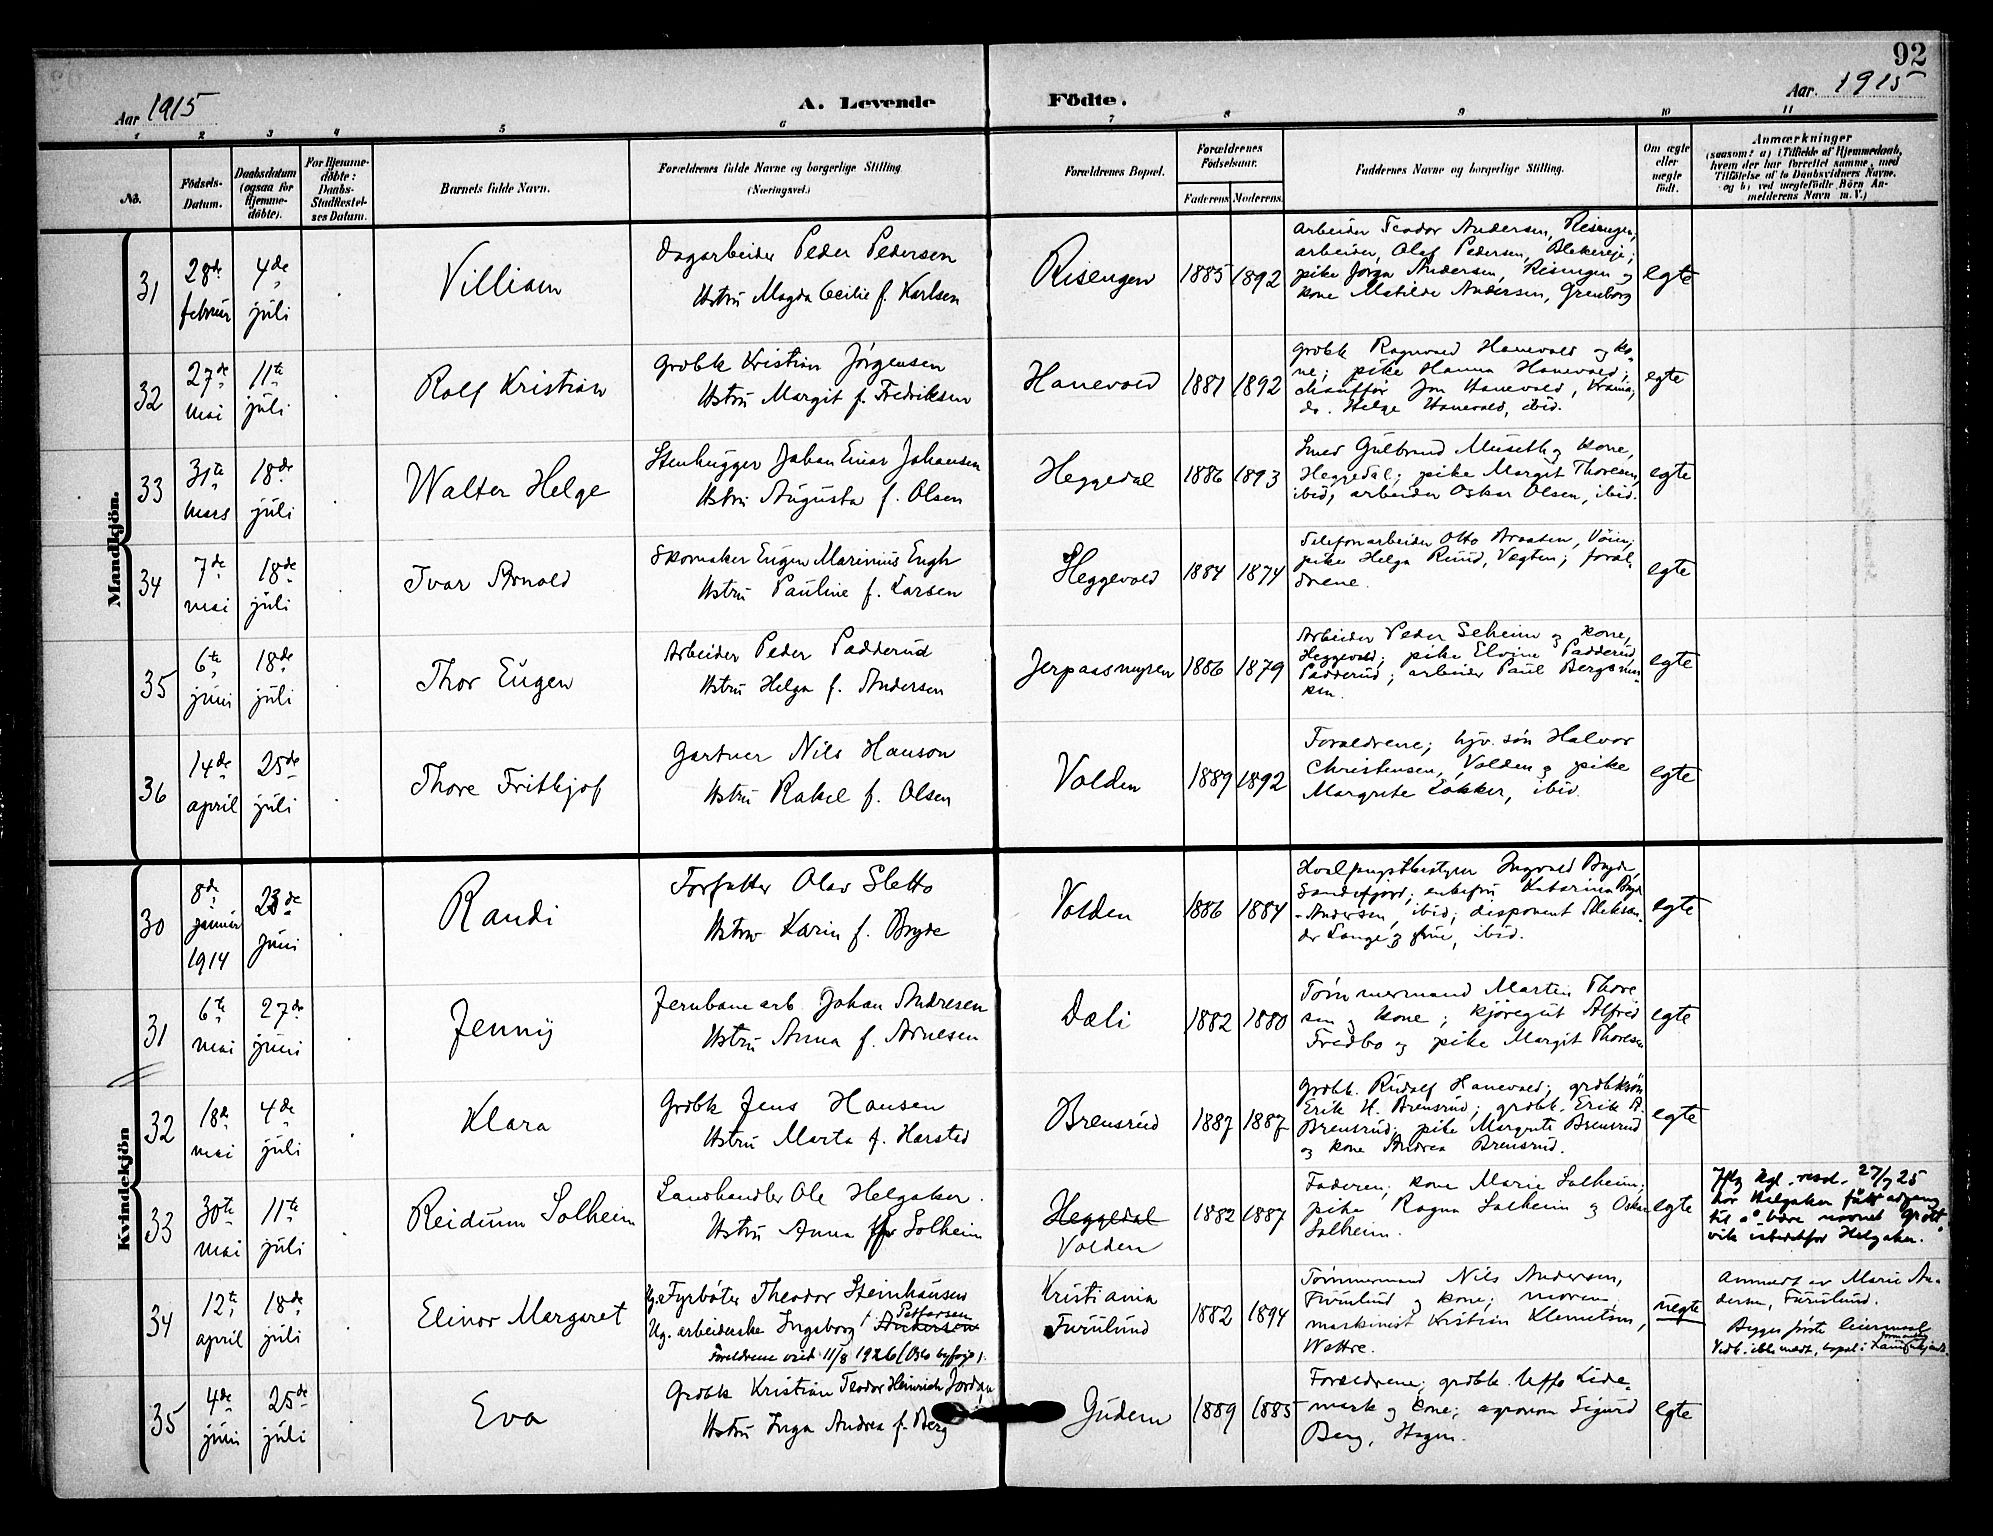 92
Aar 1915
A. Levende
Födte.
Aar. 1915
1 2 3 4 5 6 7 8 9 10 11
No.
Födsels-
Datum.
Daabsdatum
(ogsaa for
Hjemme-
döbte).
For Hjemme-
döbte:
Daabs-
Stadfæstel-
ses Datum.
Barnets fulde Navn.
Forældrenes fulde Navne og borgerlige Stilling
(Næringsvei.)
Forældrenes Bopæl.
Forældrenes
Födselsaar.
Faderens Moderens.
Faddernes Navne og borgerlige Stilling.
Om ægte
eller
uægte
födt.
Anmærkninger
(saasom: a) i Tilfælde af Hjemmedaab,
hvem der har forrettet samme, med
Tilföielse af to Daabsvidners Navne,
og b) ved uægtefödte Börn An-
melderens Navn m. V.)
Mandkjön.
31
28de
februar
4de
juli
Villiam
Dagarbeider Peder Pedersen
Hustru Magda Cecilie f. Karlsen
Risengen
1885 1892
arbeider Teodor Andersen, Risengen;
arbeider, Olaf Pedersen, Blekereje;
pike Jorga Andersen, Risengen og
kone Matilde Andersen, Grenborg
egte
32
27de
mai
11te
juli
Rolf Kristian
Grdbk Kristian Jörgensen
Hustru Margit f. Fredriksen
Hanevold
1881 1892
grdbk Ragnvald Hanevold og ko-
ne; pike Hanna Hanevold;
chauffør Jon Hanevold, Krania;
do. Helge Hanevold, ibid.
egte
33
31te
mars
18de
juli
Walter Helge
Stenhugger Johan Einar Johansen
Hustru Augusta f. Olsen
Heggedal
1886 1893
Smed Gulbrand Museth og kone,
Heggedal; pike Margit Thoresen,
ibid; arbeider Oskar Olsen, ibid.
egte
34
7de
mai
18de
juli
Ivar Arnold
Skomaker Eugen Marinius Engh
Hustru Pauline f. Larsen
Heggevold
1884 1874
Telefonarbeider Otto Braaten, Vöien;
pike Helga Ruud, Vegten; foræl-
drene.
egte
35
6te
juni
18de
juli
Thor Eugen
Arbeider Peder Padderud
Hustru Helga f. Andersen
Jerpaasmyren
1886 1879
Arbeider Peder Seheim og kone,
Heggevold; pike Elvine Padderud,
Padderud; arbeider Paul Bergsmar-
ken.
egte
36
14de
april
25de
juli
Thore Frithjof
Gartner Nils Hanson
Hustru Rakel f. Olsen
Volden
1889 1892
Forældrene; hjv. sön Halvor
Christensen, Volden og pike
Margrete Løkker, ibid.
egte
Kvindekjön
30
8de
januar
1914
23de
juni
Randi
Forfatter Olav Sletto
Hustru Karin f. Bryde
Volden
1886 1884
Hvalfangstbestyrer Ingvald Bryde,
Sandefjord; enkefru Katarina Bryde
-Andersen, ibid; disponent Aleksan-
der Lange og frue, ibid.
egte
31
6te
mai
27de
juni
Jenny
Jernbanearb Johan Andresen
Hustru Anna f. Arnesen
Dæli
1882 1880
Tömmermand Martin Thore
sen og kone; kjøregut Alfred
Fredbo og pike Margit Thoresen
egte
32
18de
mai
4de
juli
Klara
Grdbk Jens Hansen
Hustru Marta f. Harstad
Brensrud
1887 1887
Grdbk. Rudolf Hanevold; grdbksön
Erik H. Brensrud; grdbk. Erik A.
Brensrud; pike Margrete Brensrud
og kone Andrea Brensrud.
egte
33
30te
mai
11te
juli
Reidunn Solheim
Landhandler Ole Helgaker.
Hustru Anna f. Solheim
Heggedal
Volden
1882 1887
Faderen; kone Marie Solheim;
pike Ragna Solheim og Oskar
Solheim.
egte
Iflg kgl. resol. 27/7 25
har Helgaker fått adgang
til å bære navnet Grött-
vik istedetfor Helgaker.
34
12te
april
18de
juli
Elinor Margaret
Ug. Fyrböter Theodor Steinhausen
Ug. arbeiderske Ingeborg Andersen
Pettersen
Foreldrene viet 11/8 1926 (Oslo byfogd).
Kristiania
Furulund
1882 1894
Tömmermand Nils Andersen,
Furulund og kone; moren;
maskinist Kristian Klemetsen,
Wettre.
uegte
Anmeldt av Marie An-
dersen, Furulund.
Begges første leiermaal
35
4de
juni
25de
juli
Eva
Grdbk Kristian Teodor Heinrich Jordan
Hustru Inga Andrea f. Berg
Gudem
1889 1885
Forældrene; grdbk. Uffe Lide-
mark og kone; agronom Sigurd
Berg, Hagen.
egte